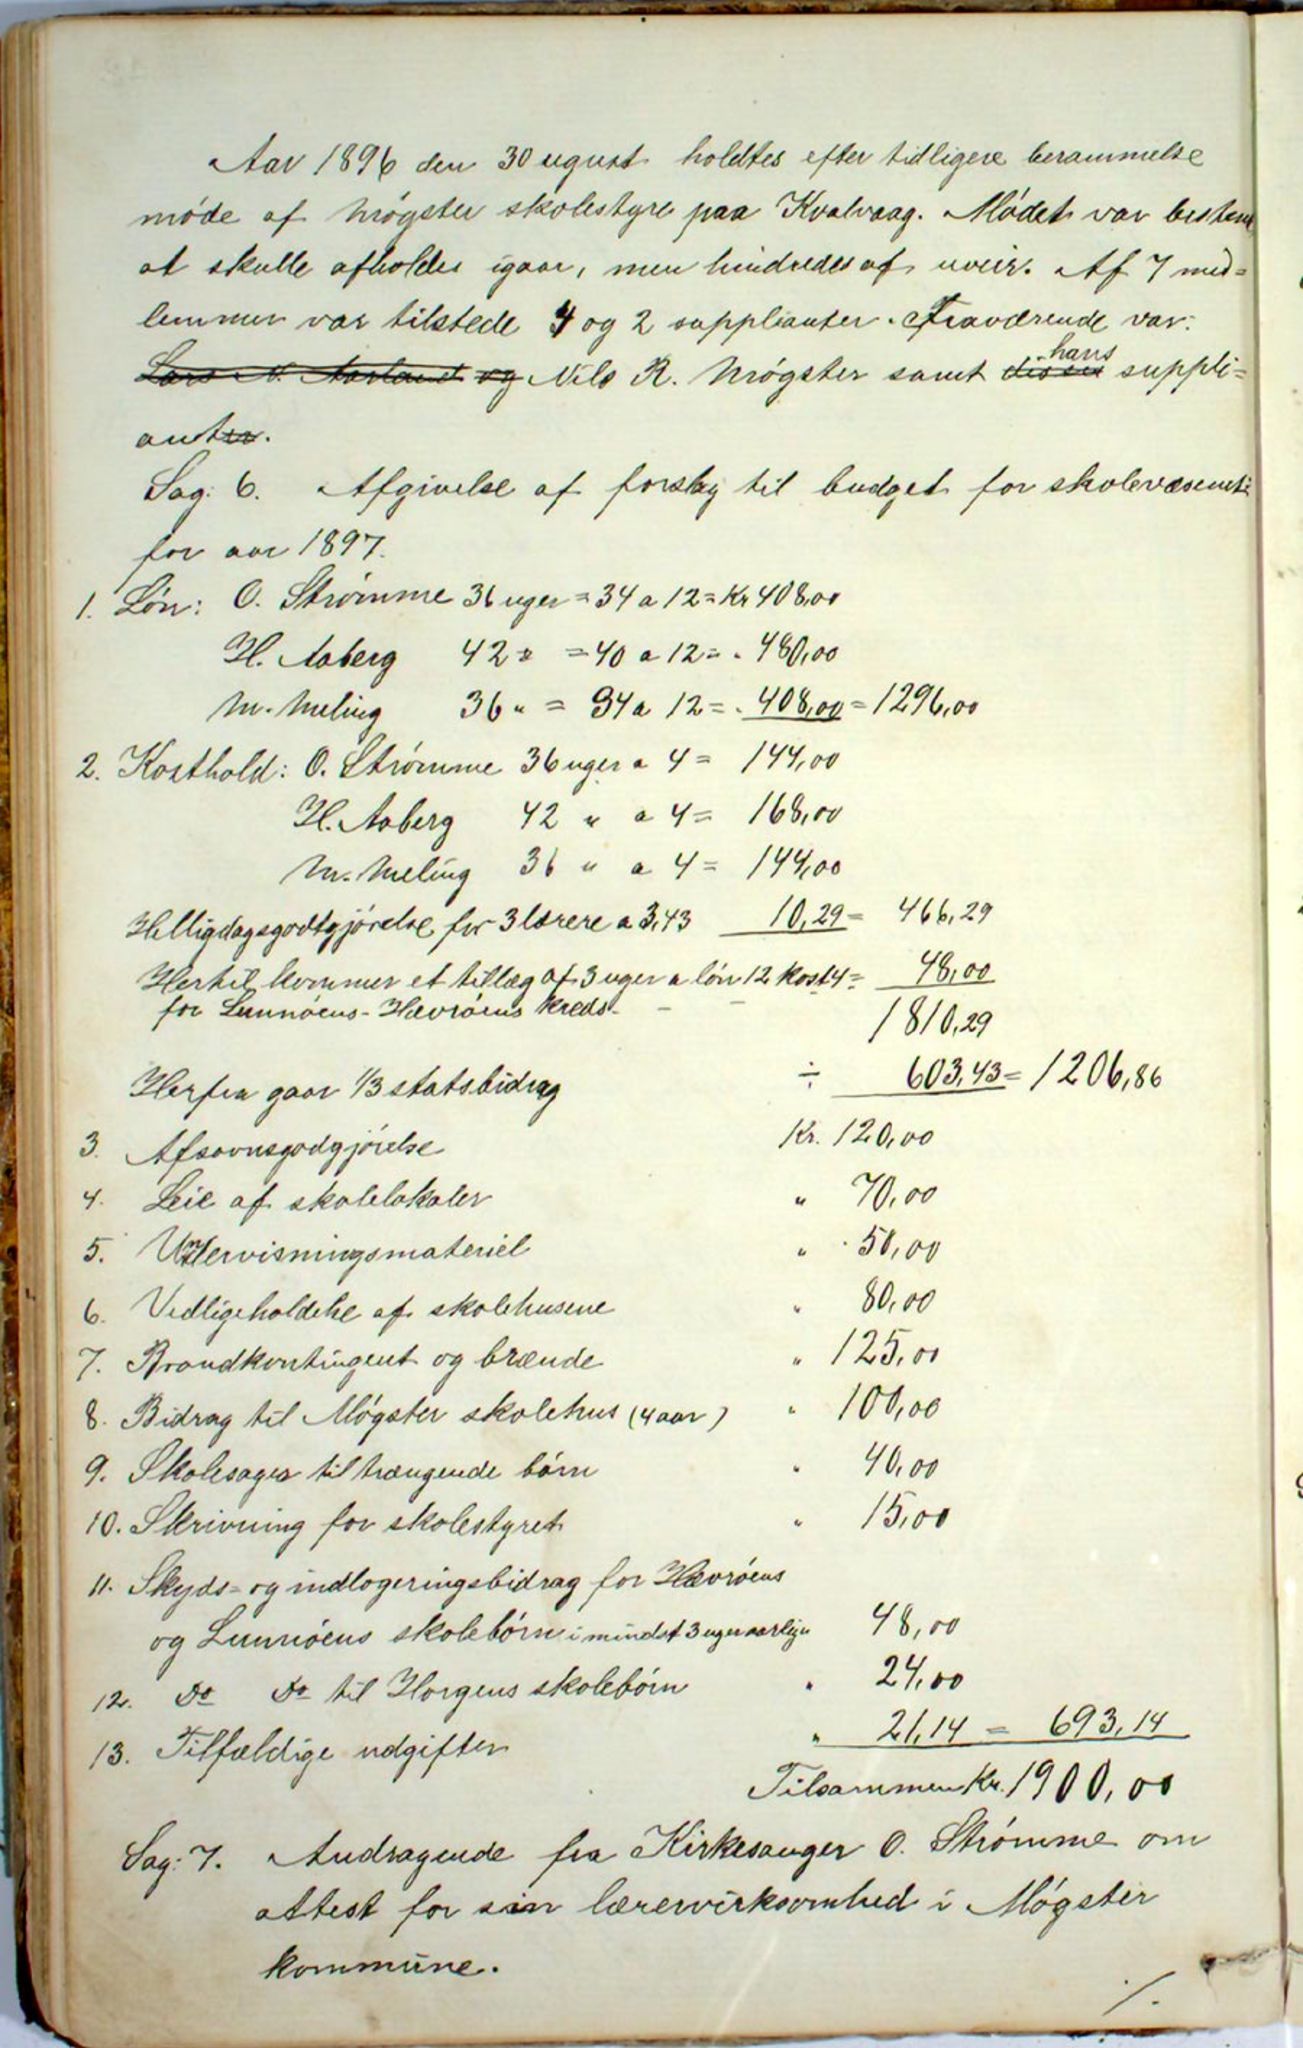 Aar 1896 den 30 ugust holdtes efter tidligere berammelse
møde af Møgster skolestyre paa Kvalvaag. Mødet var bestemt
at skulle afholdes igaar, men hindredes af uveir. Af 7 med=
lemmer var tilstede 4 og 2 supplianter. Fraværende var:
Lars N. Aarland og Nils R. Møgster samt disses hans suppli=
anter.
Sag: 6. Afgivelse af forslag til budget for skolevæsenet
for aar 1897.
1. Løn: O. Strømme 36 uger = 34 a 12 = Kr 408,00
H. Aaberg 42 " = 40 a 12 = " 480,00
M. Meling 36 " = 34 a 12 = " 408,00 = 1296,00
2. Kosthold: O. Strømme 36 uger a 4 = 144,00
H. Aaberg 42 " a 4 = 168,00
M. Meling 36 " a 4 = 144,00
Helligdagsgodtgjørelse for 3 lærere a 3,43 10,29 = 466,29
Hertil kommer et tillæg af 3 uger a løn 12 kost 4 = 48,00
for Lunnøens - Hævrøens kreds - - 1810,29
Herfra gaar 1/3 statsbidrag ÷ 603,43 = 1206,86
3. Afsavnsgodgjørelse Kr. 120,00
4. Leie af skolelokaler " 70,00
5. Undervisningsmateriel " 50,00
6. Vedligeholdelse af skolehusene " 80,00
7. Brandkontingent og brænde " 125,00
8. Bidrag til Møgster skolehus (4 aar) " 100,00
9. Skolesager til trængende børn " 40,00
10. Skrivning for skolestyret " 15,00
11. Skyds= og indlogeringsbidrag for Hævrøens
og Lunnøens skolebørn i mindst 3 uger aarlig " 48,00
12. Do Do til Horgens skolebørn " 24,00
13. Tilfældige udgifter " 21,14 = 693,14
Tilsammen Kr. 1900,00
Sag: 7. Andragende fra Kirkesanger O. Strømme om
attest for sin lærervirksomhed i Møgster
kommune.
./.